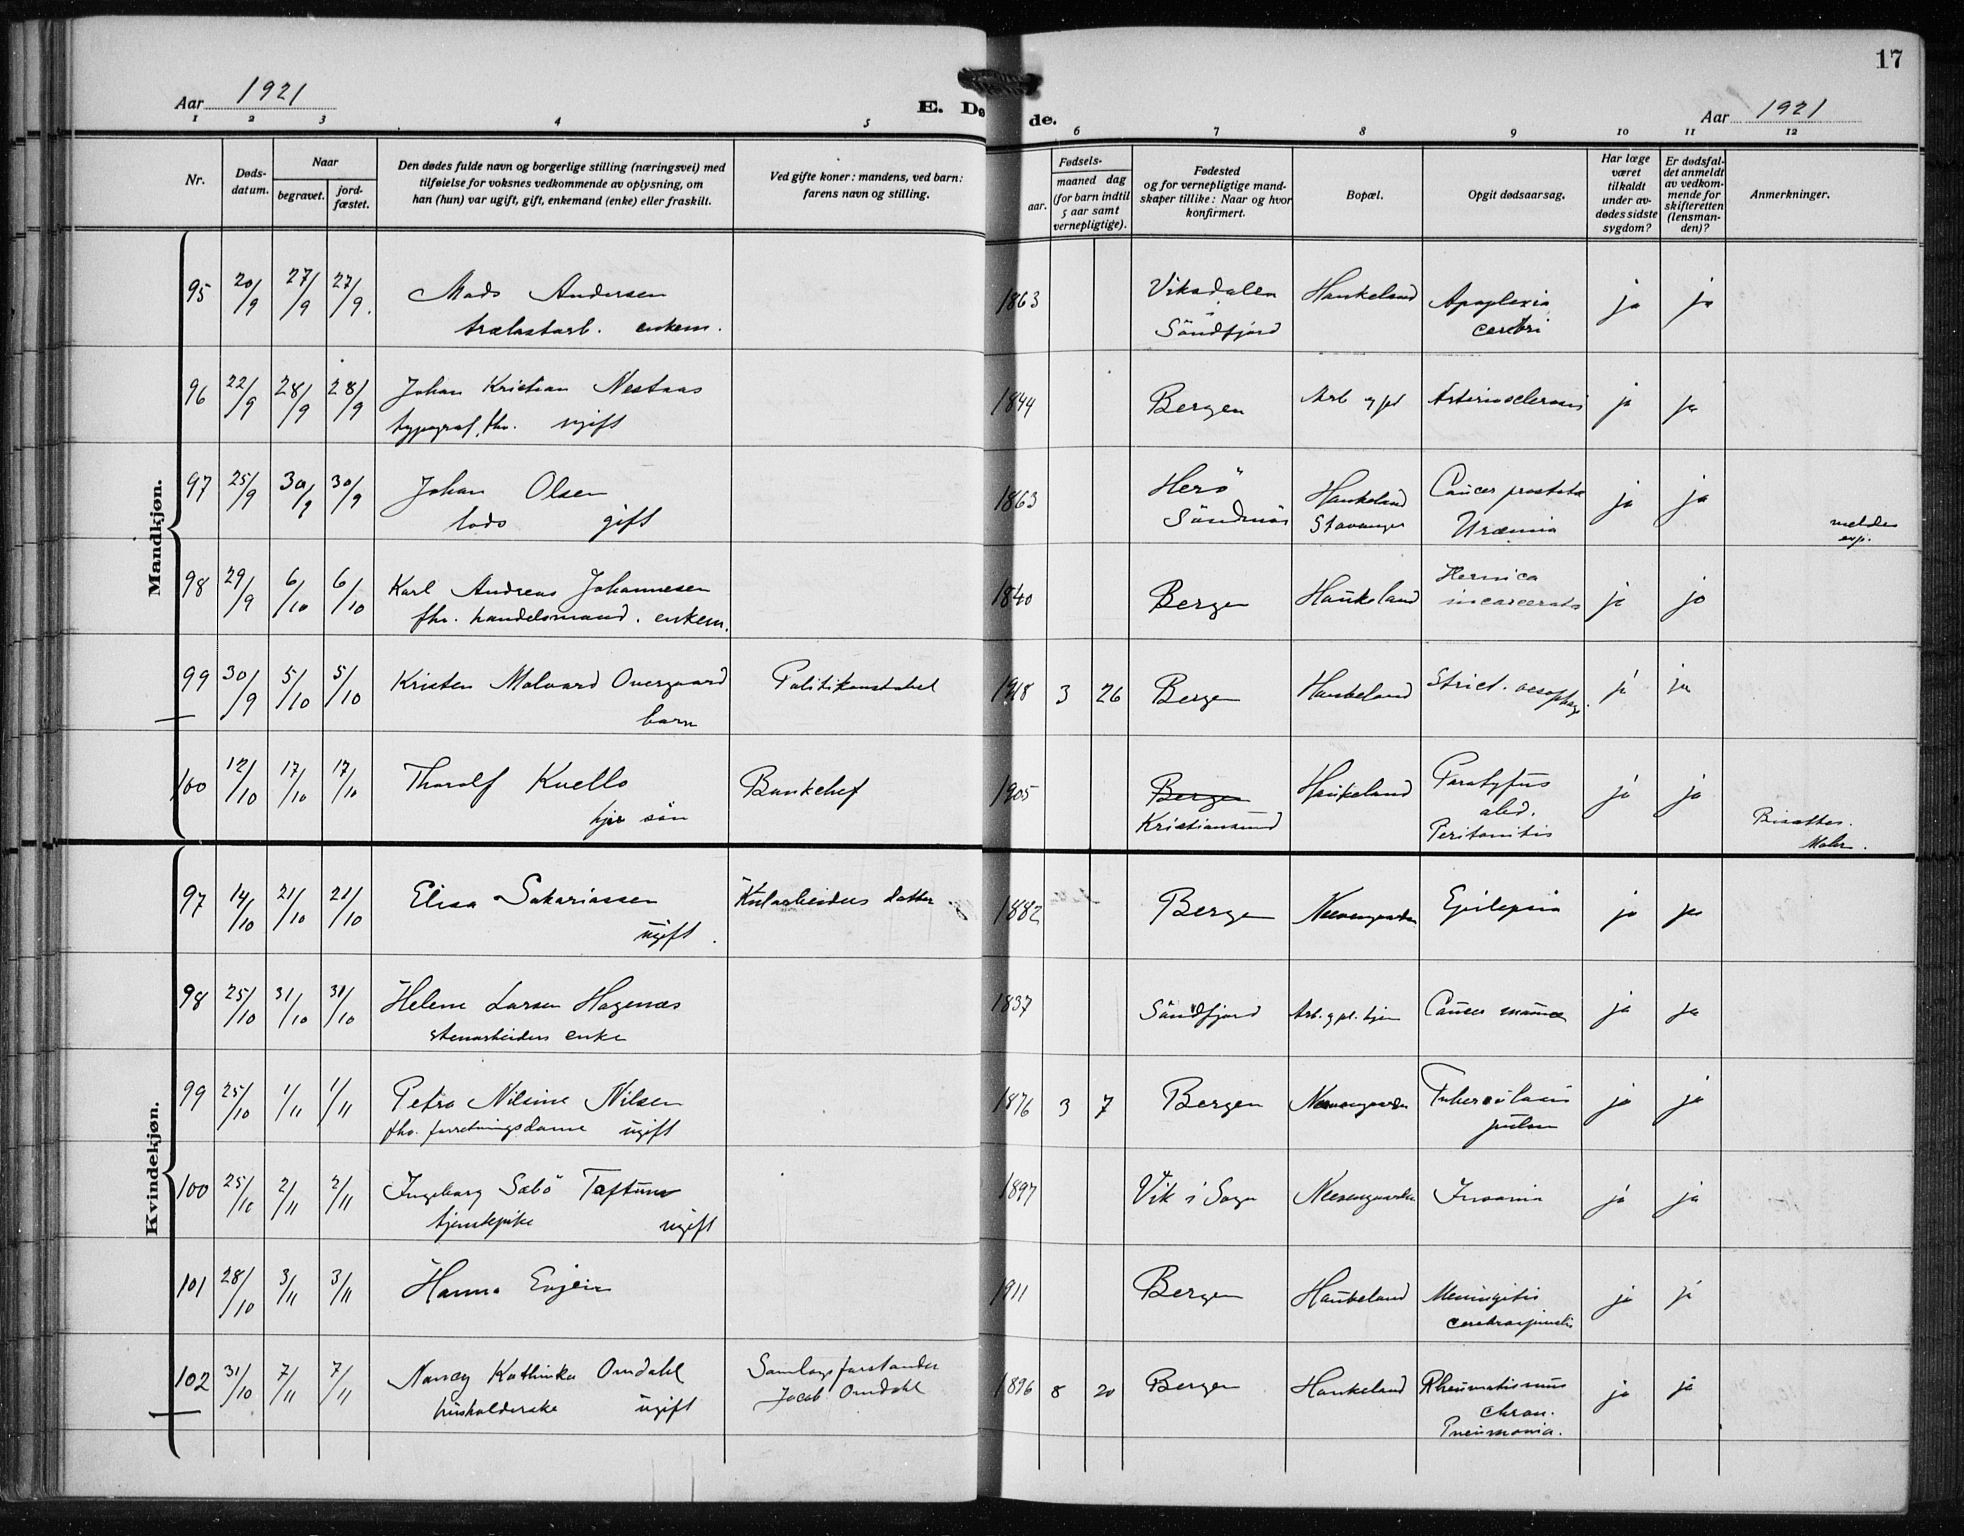 17
Aar 1921
E. Dø
de.
Aar 1921
1 2 3 4 5 6 7 8 9 10 11 12
Nr.
Døds-
datum.
Naar
begravet.
jord-
fæstet.
Den dødes fulde navn og borgerlige stilling (næringsvei) med
tilføielse for voksnes vedkommende av oplysning, om
han (hun) var ugift, gift, enkemand (enke) eller fraskilt.
Ved gifte koner: mandens, ved barn:
farens navn og stilling.
Fødsels-
aar.
maaned dag
(for barn indtil
5 aar samt
vernepligtige).
Fødested
og for vernepligtige mand-
skaper tillike: Naar og hvor
konfirmert.
Bopæl.
Opgit dødsaarsag.
Har læge
været
tilkaldt
under av-
dødes sidste
sygdom?
Er dødsfal-
det anmeldt
av vedkom-
mende for
skifteretten
(lensman-
den)?
Anmerkninger.
Mandkjøn.
95 20/9 27/9 27/9. Mads Andersen 1863 Viksdalen Haukeland Apoplexia ja ja
trælastarb. enkem. Söndfjord cerebri
96 22/9 28/9 28/9 Johan Kristian Nestaas 1844 Bergen Arb og pl Arteriosclerosis ja ja
typograf, fhv. ugift
97 25/9 30/9 30/9 Johan Olsen 1863 Herö Haukeland Cancer prostata ja ja
lods gift Söndmör Stavanger Uræmia
meldes
98 29/9 6/10 6/10 Karl Andreas Johannesen 1840 Bergen Haukeland Hernica ja ja
fhv. handelsmand. enkem. incarcerata
99 30/9 5/10 5/10 Kristen Malvard Overgaard Politikonstabel 1918 3 26 Bergen Haukeland Strict. oesophag. ja ja
barn
100 12/10 17/10 17/10 Thorolf Kvello Bankchef 1905 Bergen Haukeland Paratyfus ja ja
sön Kristiansund abd.
Peritonitis
Bisættes.
Kvindekjøn.
97 14/10 21/10 21/10 Elisa Sakariassen Kularbeiders datter 1882 Bergen Neevengaarden Epilepsia ja ja
ugift.
98 25/10 31/10 31/10 Helene Larsen Hagenæs 1837 Söndfjord Arb. og pl. hjem Cancer mamma ja ja
stenarbeiders enke
99 25/10 1/11 1/11 Petra Nilsine Nilsen 1876 3 7 Bergen Neevengaarden Tuberculosis ja ja
fhv. forretningsdame ugift pulm
100 25/10 2/11 2/11 Ingeborg Sæbö Tæftum 1897 Vik i Sogn Neevengaarden Insania ja ja
tjenestepike ugift
101 28/10 3/11 3/11 Hanna Evjen 1911 Bergen Haukeland Meningitis ja ja
cerebrospinalis
102 31/10 7/11 7/11 Nancy Kathinka Omdahl Samlagsforstander 1896 8 20 Bergen Haukeland Rheumatismus ja ja
husholderske ugift Jacob Omdahl chron.
Pneumonia.